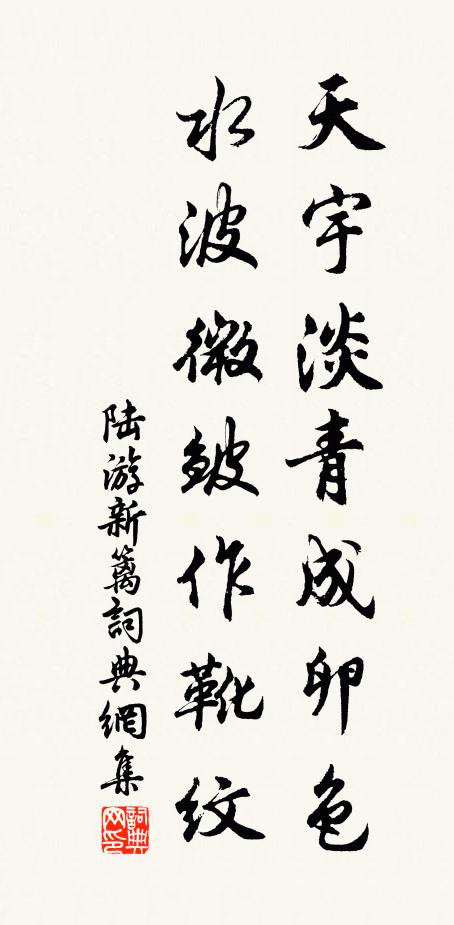 天宇淡青成卵色
水波微皴作靴紋
陆游新篱詞典網集
詞典网印